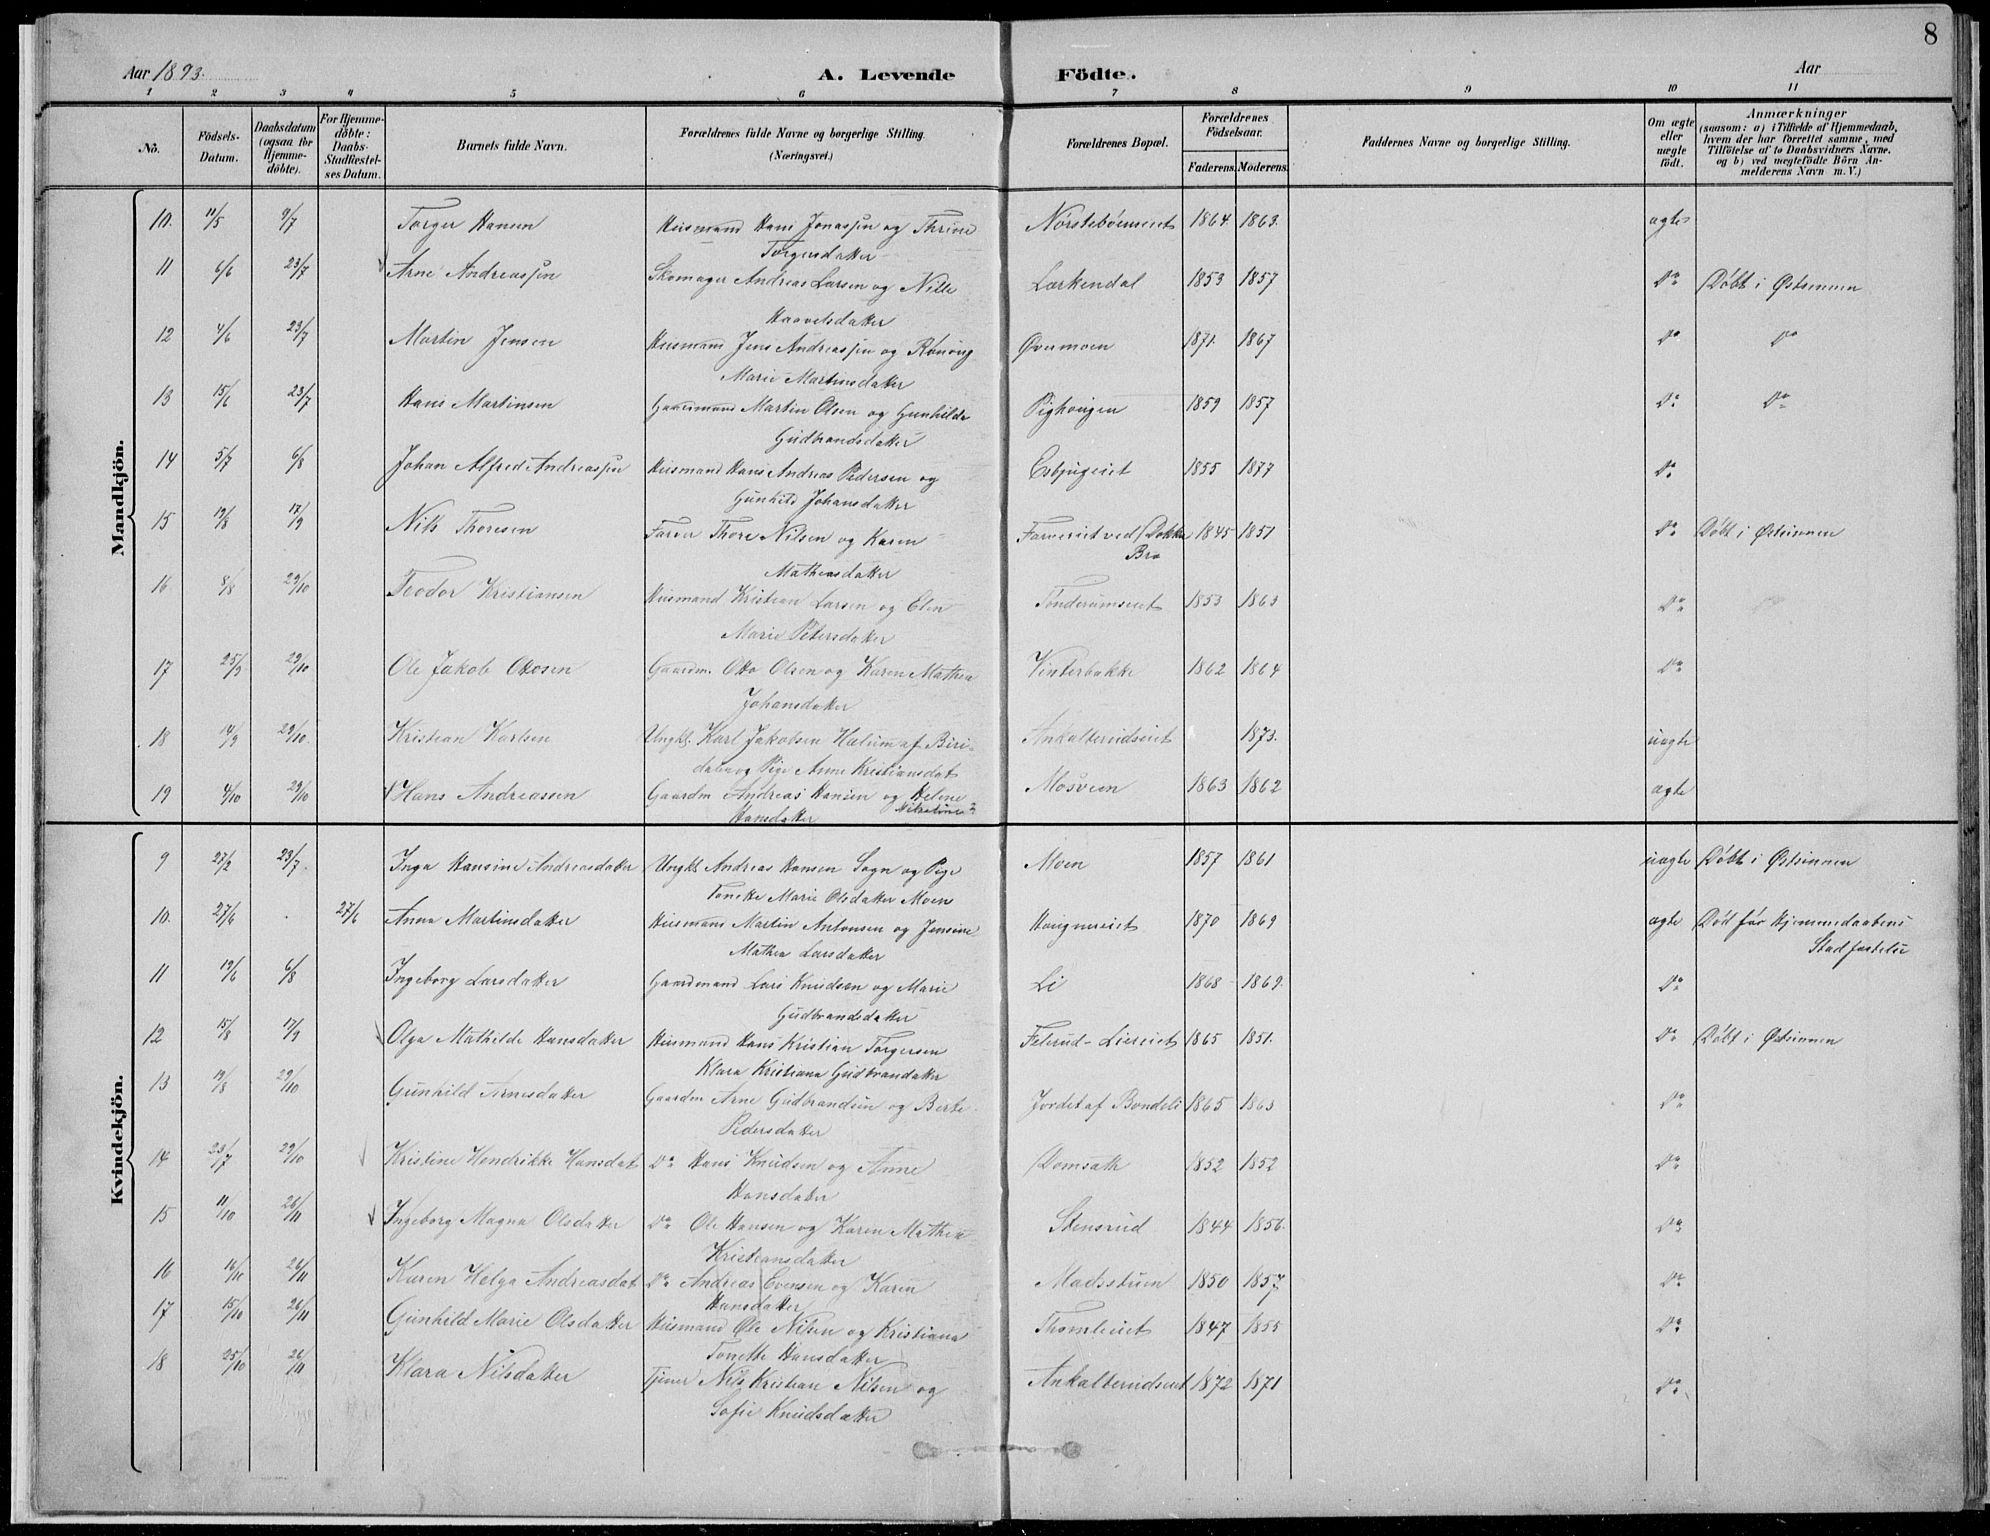 8
Aar 1893. A. Levende Födte. Aar
1 2 3 4 5 6 7 8 9 10 11
No. Födsels-Datum. Daabsdatum (ogsaa for Hjemmedöbte). For Hjemmedöbte: Daabs-Stadfæstelses Datum. Barnets fulde Navn. Forældrenes fulde Navne og borgerlige Stilling. (Næringsvei.) Forældrenes Bopæl. Forældrenes Födselsaar. Faderens. Moderens. Faddernes Navne og borgerlige Stilling. Om ægte eller uægte födt. Anmærkninger (saasom: a) i Tilfælde af Hjemmedaab, hvem der har forrettet samme, med Tilföielse af to Daabsvidners Navne, og b) ved uægtefödte Börn Anmelderens Navn m. V.)
Mandkjön.
10. 11/5 9/7 Torger Hansen Husmand Hans Jonassen og Thrine Nörsteböenseiet 1864 1863. ægte
Torgersdatter
11 6/6 23/7 Arne Andreassen Skomager Andreas Larsen og Nille Lærkendal 1853 1857 Do Döbt i Østsinnen
Haavelsdatter
12 4/6 23/7 Martin Jensen Husmand Jens Andreassen og Rönnög Øvermoen 1871. 1867 Do Do
Marie Martinsdatter
13 15/6 23/7 Hans Martinsen Gaardmand Martin Olsen og Gunhilde Pighaugen 1859 1857 Do Do
Gudbrandsdatter
14 5/7 6/8 Johan Alfred Andreassen Husmand Hans Andreas Pedersen og Esbjugeiet 1855 1877 Do
Gunhild Johansdatter
15 19/8 17/9 Nils Thoresen Farver Thore Nilsen og Karen Farveriet ved Dokka 1845 1851 Do Döbt i Østsinnen
Bro
Matheasdatter
16 8/8 29/10 Teodor Kristiansen Husmand Kristian Larsen og Elen Tonderumseiet 1853 1863 Do
Marie Petersdatter
17 25/9 29/10 Ole Jakob Ottosen Gaardm. Otto Olsen og Karen Mathea Vinterbakke 1862 1864 Do
Johansdatter
18 14/9 29/10. Kristian Karlsen Ungkl. Karl Jakobsen Hælum af Biri- Ankalterudseiet 1873. uægte
dalen og Pige Anne Kristiansdat
19 4/10 29/10 Hans Andreassen Gaardm Andreas Hansen og Helene Mosveen 1863 1862 ægte
Hansdatter
Kvindekjön.
9 27/2 23/7. Inga Hansine Andreasdatter Ungkl. Andreas Hansen Sogn og Pige Moen 1857 1861 uægte Döbt i Østsinnen
Tonette Marie Olsdatter Moen
10. 27/6 27/6 Anna Martinsdatter Husmand Martin Antonsen og Jensine Haugnereiet 1870 1869 ægte Död för Hjemmedaabens
Mathea Larsdatter Stadfæstelse
11 19/6 6/8 Ingeborg Larsdatter Gaardmand Lars Knudsen og Marie Li 1868 1869. Do
Gudbrandsdatter
12 15/8 17/9 Olga Mathilde Hansdatter Husmand Hans Kristian Torgersen Felerud-Lieeiet 1865 1851. Do Döbt i Østsinnen
Klara Kristiana Gudbrandatter
13 19/8 29/10 Gunhild Arnesdatter Gaardm Arne Gudbrandsen og Berte Jordet af Bondeli 1865 1863 Do
Pedersdatter
14 23/7 29/10 Kristine Hendrikke Hansdat Do Hans Knudsen og Anne Domsath 1852 1852 Do
Hansdatter
15 11/10 26/11 Ingeborg Magna Olsdatter Do Ole Hansen og Karen Mathea Stensrud 1844 1856. Do
Kristiansdatter
16 16/10 26/11 Karen Helga Andreasdat Do Andreas Evensen og Karen Madsstuen 1850 1857 Do
Hansdatter
17 15/10 26/11 Gunhild Marie Olsdatter Husmand Ole Nilsen og Kristiana Thomleiet 1847 1855 Do
Tonette Hansdatter
18 25/10 26/11 Klara Nilsdatter Tjener Nils Kristian Nilsen og Ankalterudseiet 1872 1871 Do
Sofie Knudsdatter